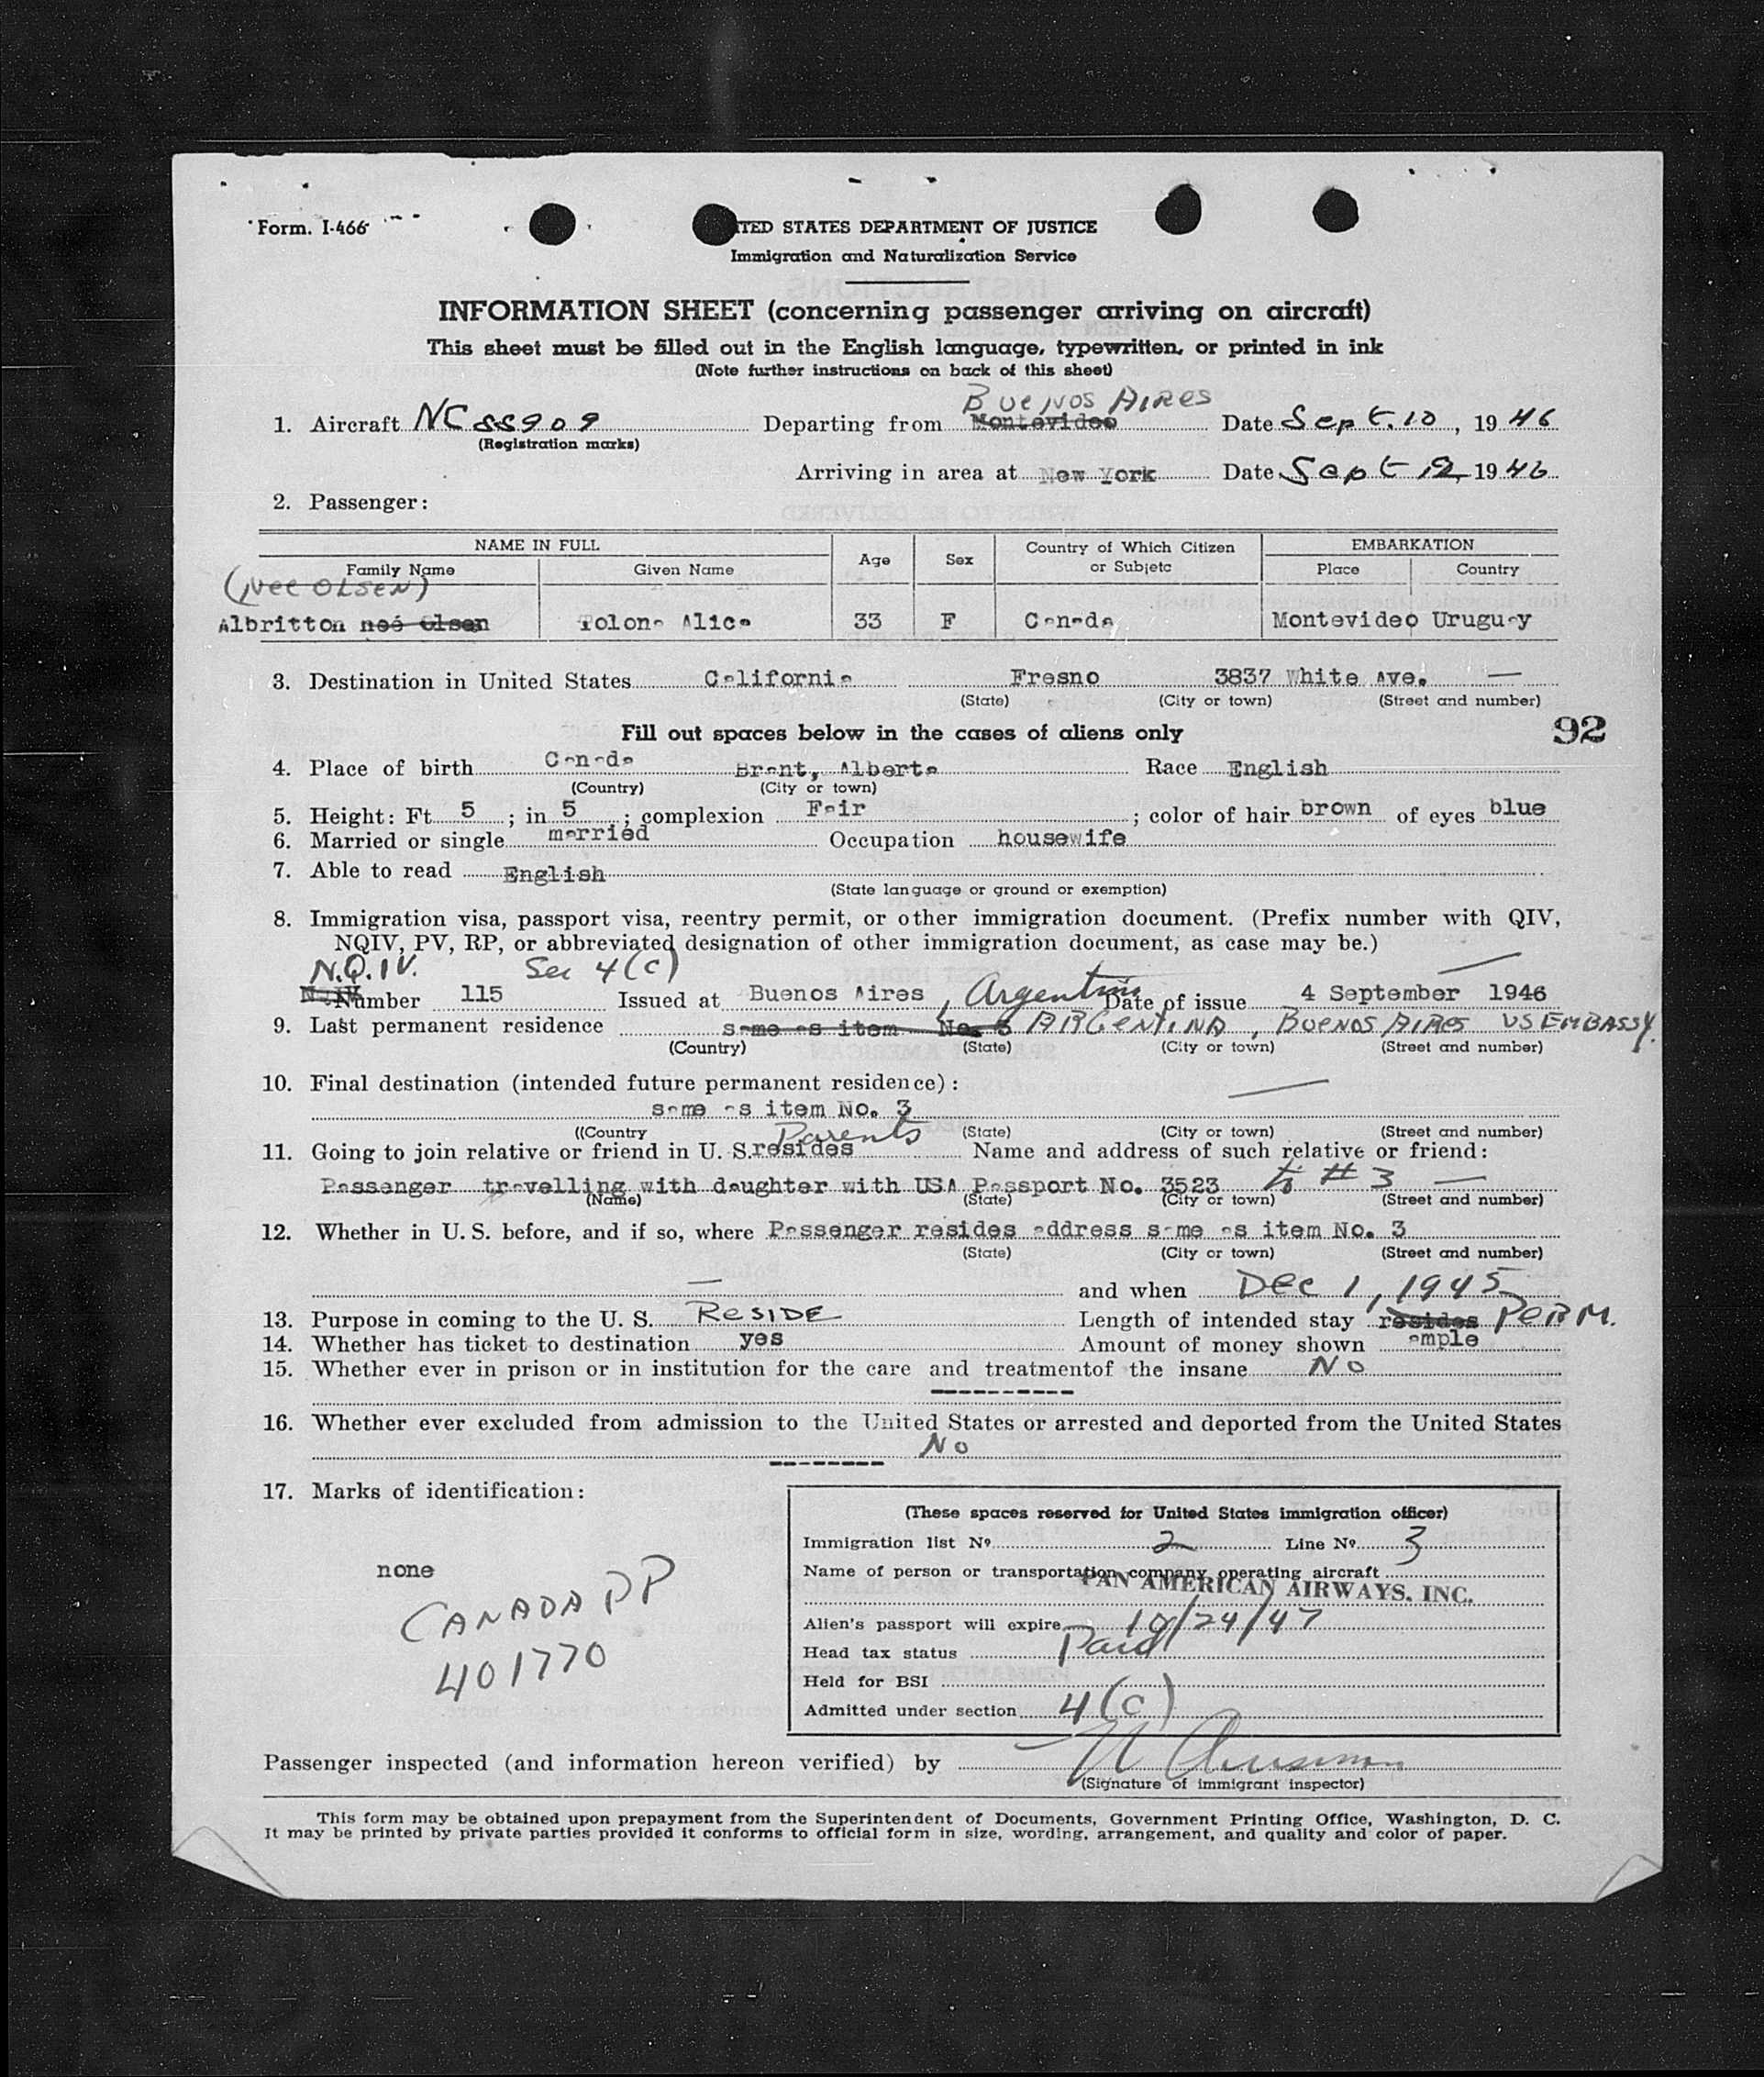 Form. I-466
TED STATES DEPARTMENT OF JUSTICE
Immigration and Naturalization Service
INFORMATION SHEET (concerning passenger arriving on aircraft)
This sheet must be filled out in the English language, typewritten, or printed in ink
(Note further instructions on back of this sheet)
BUENOS AIRES
1. Aircraft NC 88909 Departing from Montevideo Date Sept. 10, 1946
(Registration marks)
Arriving in area at New York Date Sept 12, 1946
2. Passenger:
NAME IN FULL Age Sex Country of Which Citizen or Subjetc EMBARKATION
Family Name Given Name Place Country
(NEE OLSEN)
Albritton neé Olsen Alice 33 F Canada Montevideo Uruguay
3. Destination in United States California Fresno 3837 White Ave. —
(State) (City or town) (Street and number)
Fill out spaces below in the cases of aliens only
92
4. Place of birth Canada Brant, Alberta Race English
(Country) (City or town)
5. Height: Ft. 5 ; in 5 ; complexion Fair ; color of hair brown of eyes blue
6. Married or single married Occupation housewife
7. Able to read English
(State language or ground or exemption)
8. Immigration visa, passport visa, reentry permit, or other immigration document. (Prefix number with QIV,
NQIV, PV, RP, or abbreviated designation of other immigration document, as case may be.)
N.Q.IV. Sec 4(c) —
Number 115 Issued at Buenos Aires, Argentina Date of issue 4 September 1946
9. Last permanent residence same as item No. 3 ARGENTINA, BUENOS AIRES US EMBASSY.
(Country) (State) (City or town) (Street and number)
10. Final destination (intended future permanent residence): —
same as item No. 3
((Country (State) (City or town) (Street and number)
Parents
11. Going to join relative or friend in U. S. resides Name and address of such relative or friend:
Passenger travelling with daughter with USA Passport No. 3523 to # 3 —
(Name) (State) (City or town) (Street and number)
12. Whether in U. S. before, and if so, where Passenger resides address same as item No. 3
(State) (City or town) (Street and number)
— and when DEC 1, 1945
13. Purpose in coming to the U. S. RESIDE Length of intended stay resides PERM.
14. Whether has ticket to destination yes Amount of money shown ample
15. Whether ever in prison or in institution for the care and treatmentof the insane NO
16. Whether ever excluded from admission to the United States or arrested and deported from the United States
NO
17. Marks of identification:
none
CANADA PP
401770
(These spaces reserved for United States immigration officer)
Immigration list Nº 2 Line Nº 3
Name of person or transportation company operating aircraft
PAN AMERICAN AIRWAYS, INC.
Alien's passport will expire 10/24/47
Head tax status Paid
Held for BSI
Admitted under section 4(c)
Passenger inspected (and information hereon verified) by
(Signature of immigrant inspector)
This form may be obtained upon prepayment from the Superintendent of Documents, Government Printing Office, Washington, D. C.
It may be printed by private parties provided it conforms to official form in size, wording, arrangement, and quality and color of paper.